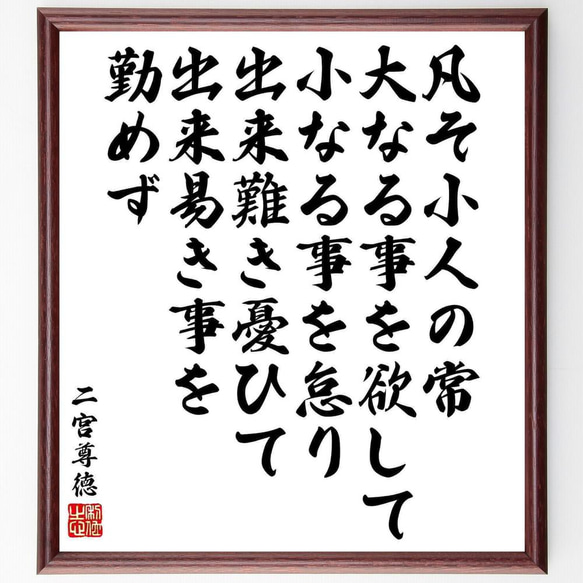 凡そ小人の常
大なる事を欲して
小なる事を怠り
出来難き憂ひて
出来易き事を
勤めず
二宮尊徳